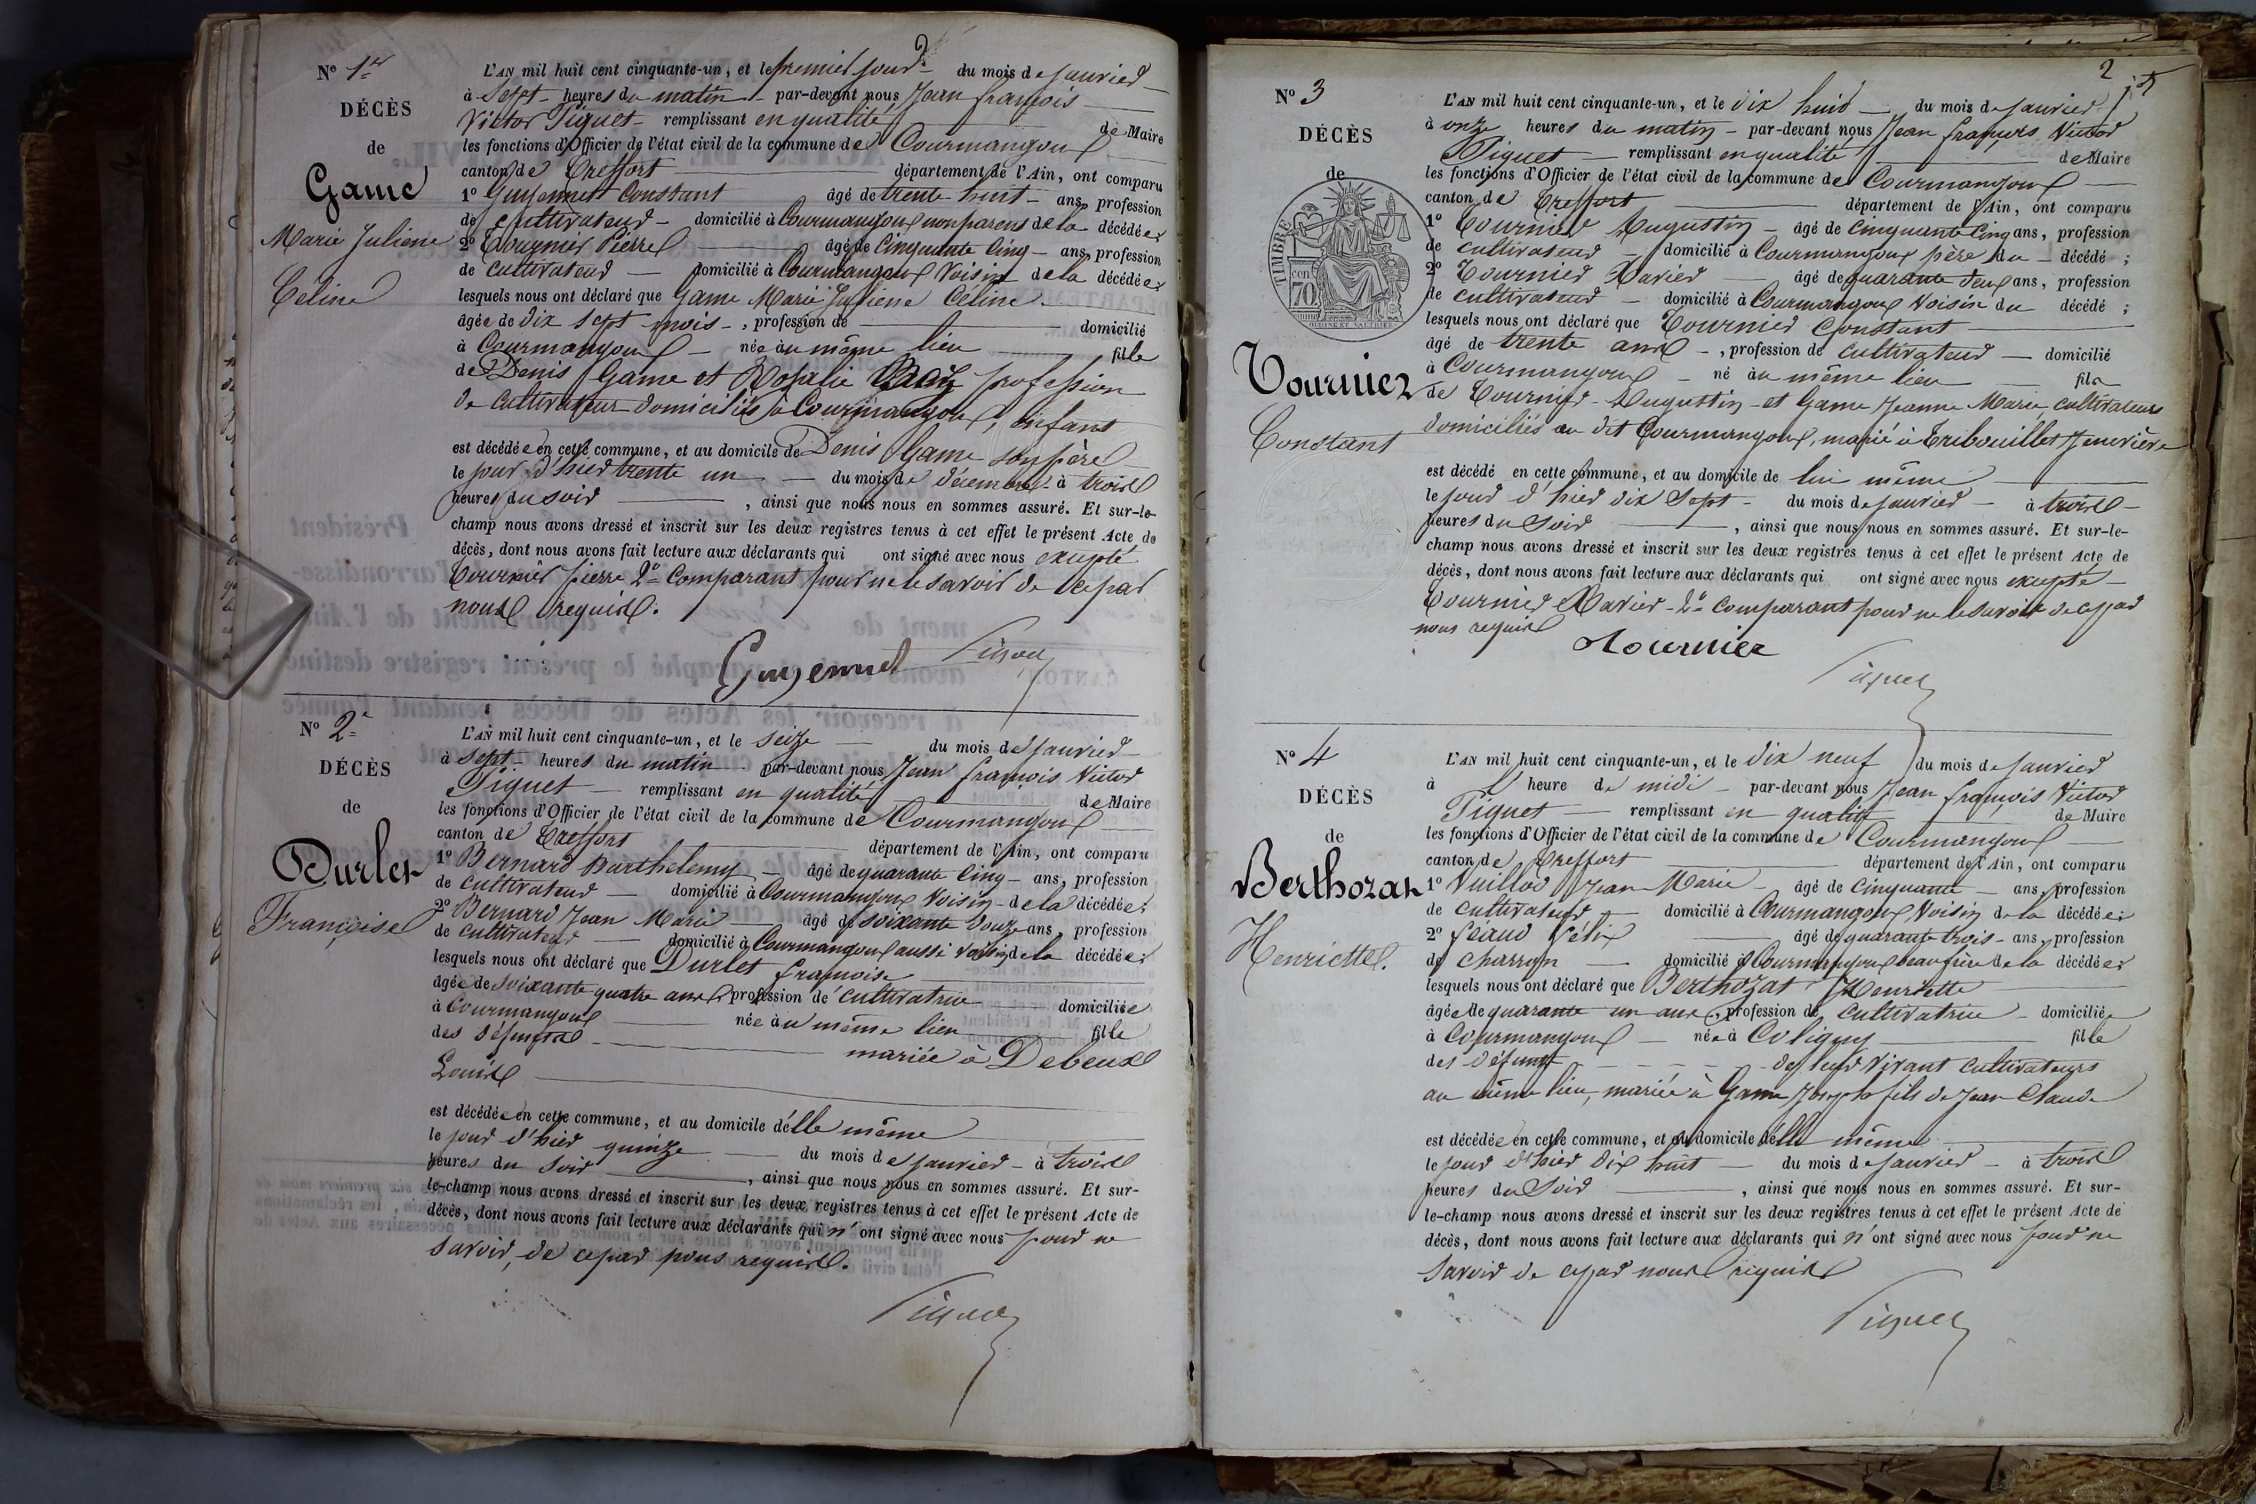 N° 1er
DÉCÈS
de
Game
Marie Juliene
Céline
L'AN mil huit cent cinquante-un, et le premier jour du mois de janvier
à Sept heures du matin par-devant nous Jean françois
Victor Piquet remplissant en qualité de Maire
les fonctions d'Officier de l'état civil de la commune de Courmangoux
canton de Treffort département de l'Ain, ont comparu
1° Guyennet Constant âgé de trente huit ans, profession
de cultivateur domicilié à Courmangoux non parens de la décédée;
2° Tournier Pierre âgé de Cinquante Cinq ans, profession
de cultivateur domicilié à Courmangoux Voisin de la décédée;
lesquels nous ont déclaré que Game Marie Juliene Céline
âgée de dix sept mois, profession de domicilié
à Courmangoux née au même lieu fille
de Denis Game et Rosalie profession
de Cultivateur domiciliés à Courmangoux, enfant
est décédée en cette commune, et au domicile de Denis Game son père
le jour d'hier trente un du mois de décembre à trois
heures du soir, ainsi que nous nous en sommes assuré. Et sur-le-
champ nous avons dressé et inscrit sur les deux registres tenus à cet effet le présent Acte de
décès, dont nous avons fait lecture aux déclarants qui ont signé avec nous exepté
Tournier pierre 2e Comparant pour ne le savoir de ce par
nous requis.
Guyennet Piquet
N° 2e
DÉCÈS
de
Durlet
Françoise
L'AN mil huit cent cinquante-un, et le seize du mois de janvier
à sept heures du matin par-devant nous Jean françois Victor
Piquet remplissant en qualité de Maire
les fonctions d'Officier de l'état civil de la commune de Courmangoux
canton de Treffort département de l'Ain, ont comparu
1° Bernard Barthelemy âgé de quarante Cinq ans, profession
de cultivateur domicilié à Courmangoux Voisin de la décédée;
2° Bernard Jean Marie âgé de soixante douze ans, profession
de cultivateur domicilié à Courmangoux aussi voisin de la décédée;
lesquels nous ont déclaré que Durlet françoise
âgée de soixante quatre ans, profession de cultivatrice domiciliée
à Courmangoux née au même lieu fille
des défunts mariée à Debeux
Louis
est décédée en cette commune, et au domicile d'elle même
le jour d'hier quinze du mois de janvier à trois
heures du soir, ainsi que nous nous en sommes assuré. Et sur-
le-champ nous avons dressé et inscrit sur les deux registres tenus à cet effet le présent Acte de
décès, dont nous avons fait lecture aux déclarants qui n'ont signé avec nous pour ne
savoir, de ce par nous requis.
Piquet
2
N° 3
DÉCÈS
de
TIMBRE
70
Tournier
Constant
L'AN mil huit cent cinquante-un, et le dix huit du mois de janvier
à onze heures du matin par-devant nous Jean françois Victor
Piquet remplissant en qualité de Maire
les fonctions d'Officier de l'état civil de la commune de Courmangoux
canton de Treffort département de l'Ain, ont comparu
1° Tournier Augustin âgé de cinquante Cinq ans, profession
de cultivateur domicilié à Courmangoux père du décédé;
2° Tournier Xavier âgé de quarante deux ans, profession
de cultivateur domicilié à Courmangoux Voisin du décédé;
lesquels nous ont déclaré que Tournier Constant
âgé de trente ans, profession de cultivateur domicilié
à Courmangoux né au même lieu fils
de Tournier Augustin et Game Jeanne Marie, cultivateurs
domiciliés au dit Courmangoux, marié à Tribouillet Jenevière
est décédé en cette commune, et au domicile de lui même
le jour d'hier dix Sept du mois de janvier à trois
heures du Soir, ainsi que nous nous en sommes assuré. Et sur-le-
champ nous avons dressé et inscrit sur les deux registres tenus à cet effet le présent Acte de
décès, dont nous avons fait lecture aux déclarants qui ont signé avec nous exepté
Tournier Xavier 2e Comparant pour ne le savoir de ce par
nous requis
Tournier
Piquet
N° 4
DÉCÈS
de
Berthozat
Henriette.
L'AN mil huit cent cinquante-un, et le dix neuf du mois de janvier
à heure de midi par-devant nous Jean françois Victor
Piquet remplissant en qualité de Maire
les fonctions d'Officier de l'état civil de la commune de Courmangoux
canton de Treffort département de l'Ain, ont comparu
1° Vuillod Jean Marie âgé de cinquante ans, profession
de cultivateur domicilié à Courmangoux Voisin de la décédée;
2° féaud félix âgé de quarante trois ans, profession
de charron domicilié à Courmangoux beau frère de la décédée;
lesquels nous ont déclaré que Berthozat Henriette
âgée de quarante un ans, profession de cultivatrice domiciliée
à Courmangoux née à Coligny fille
des défunts de leur Vivant cultivateurs
au même lieu, mariée à Game Joseph fils de Jean Claude
est décédée en cette commune, et au domicile d'elle même
le jour d'hier dix huit du mois de janvier à trois
heures du Soir, ainsi que nous nous en sommes assuré. Et sur-
le-champ nous avons dressé et inscrit sur les deux registres tenus à cet effet le présent Acte de
décès, dont nous avons fait lecture aux déclarants qui n'ont signé avec nous pour ne
Savoir de ce par nous requis
Piquet